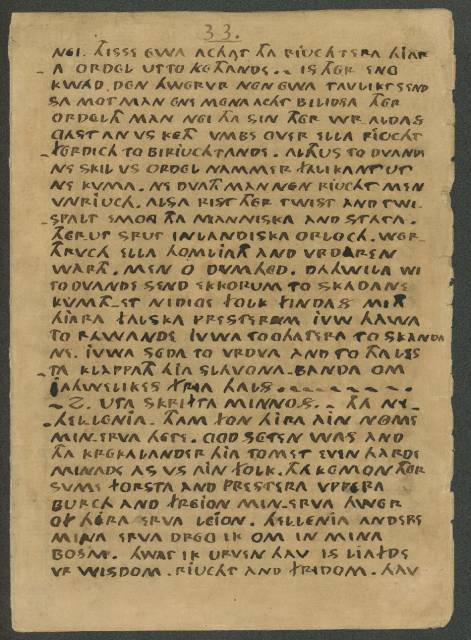 33.
NEI. THISSE EWA ACHATH THA RIUCHTERA HJAR
A ORDEL UT TO KETHANDE.. IS THER ENG
KWAD. DEN HWERVR NEN EWA TAVLIKT SEND
SA MOT MAN ENE MENA ACHT BILIDSA THER
ORDELTH MAN NEI THA SIN THER WR ALDAS
GAST AN VS KETH VMBE OVER ELLA RIUCHT
FERDICH TO BIRIUCHTANDE. ALTHUS TO DVANDE
NE SKIL VS ORDEL NAMMER FALIKANT UT
NE KVMA. NE DVATH MAN NEN RIUCHT MEN
VNRIUCH. ALSA RIST THER TWIST AND TWI-
SPALT EMONG THA MANNISKA AND STATA.
THERUT SPRUT INLANDISKA ORLOCH. WER-
THRVCH ELLA HOMLJATH AND VRDAREN
WARTH. MEN O DVMHED. DAHWILA WI
TO DVANDE SEND EKKORUM TO SKADANE
KVMTH-ET NIDIGE FOLK FINDAS MITH
HJARA FALSKA PRESTERUM JVW HAWA
TO RAWANDE JVWA TOGHATERA TO SKANDA
NE. JVWA SEDA TO VRDVA AND TO THA LES
TA KLAPPATH HJA SLAVONA-BANDA OM
JAHWELIKES FRYA HALS.
2. UTA SKRIFTA MINNOS. THA NY-
HELLENIA. THAM FON HIRA AIN NOME
MIN-ERVA HETE. GOD SETEN WAS AND
THA KREKALANDER HJA TO MET EVEN HARDE
MINADE AS VS AIN FOLK. THA KEMON THER
SUME FORSTA AND PRESTERA VPPERA
BURCH AND FREJON MIN-ERVA HWER
OF HIRA ERVA LEJON. HELLENIA ANDERE
MINA ERVA DREG IK OM IN MINA
BOSM. HWAT IK URVEN HAV IS LIAFDE
VR WISDOM. RIUCHT AND FRIDOM. HAV